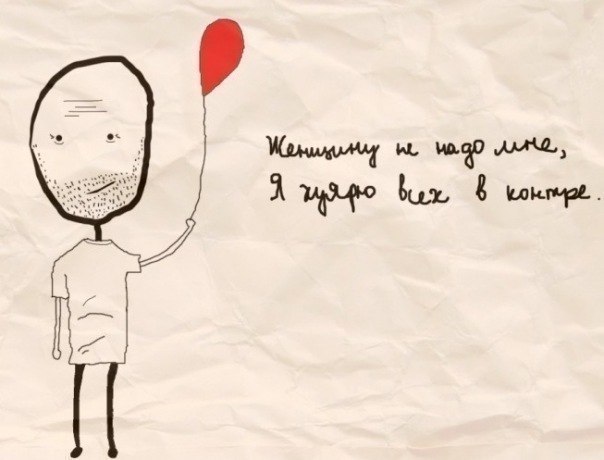 Женщину не надо мне,
Я хуярю всех в контре.